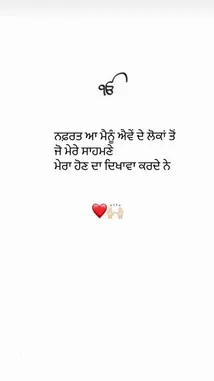 ੴ
ਨਫ਼ਰਤ ਆ ਮੈਨੂੰ ਐਵੇਂ ਦੇ ਲੋਕਾਂ ਤੋਂ
ਜੋ ਮੇਰੇ ਸਾਹਮਣੇ
ਮੇਰਾ ਹੋਣ ਦਾ ਦਿਖਾਵਾ ਕਰਦੇ ਨੇ
❤️🙌🏻